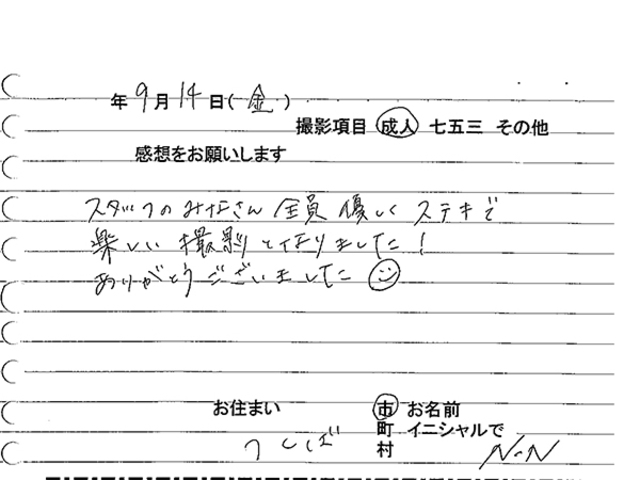 年 9月 14日( 金 )
撮影項目 成人 七五三 その他
感想をお願いします
スタッフのみなさん 全員 優しく ステキで
楽しい 撮影となりました!
ありがとうございました
お住まい 市 お名前
町 イニシャルで
つくば 村 N・N